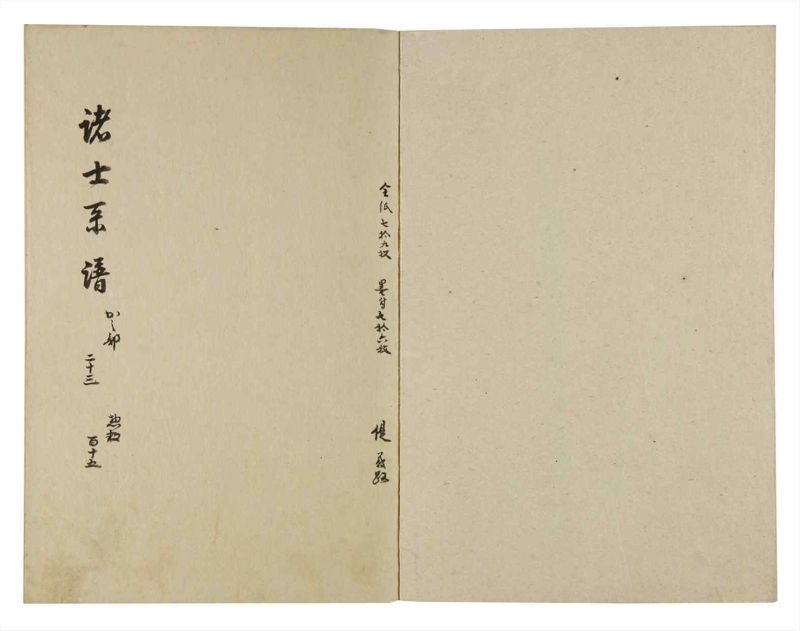 全紙七拾九枚 墨付七拾六枚 堤
諸士系譜 か之部 惣数
二十三 百十五